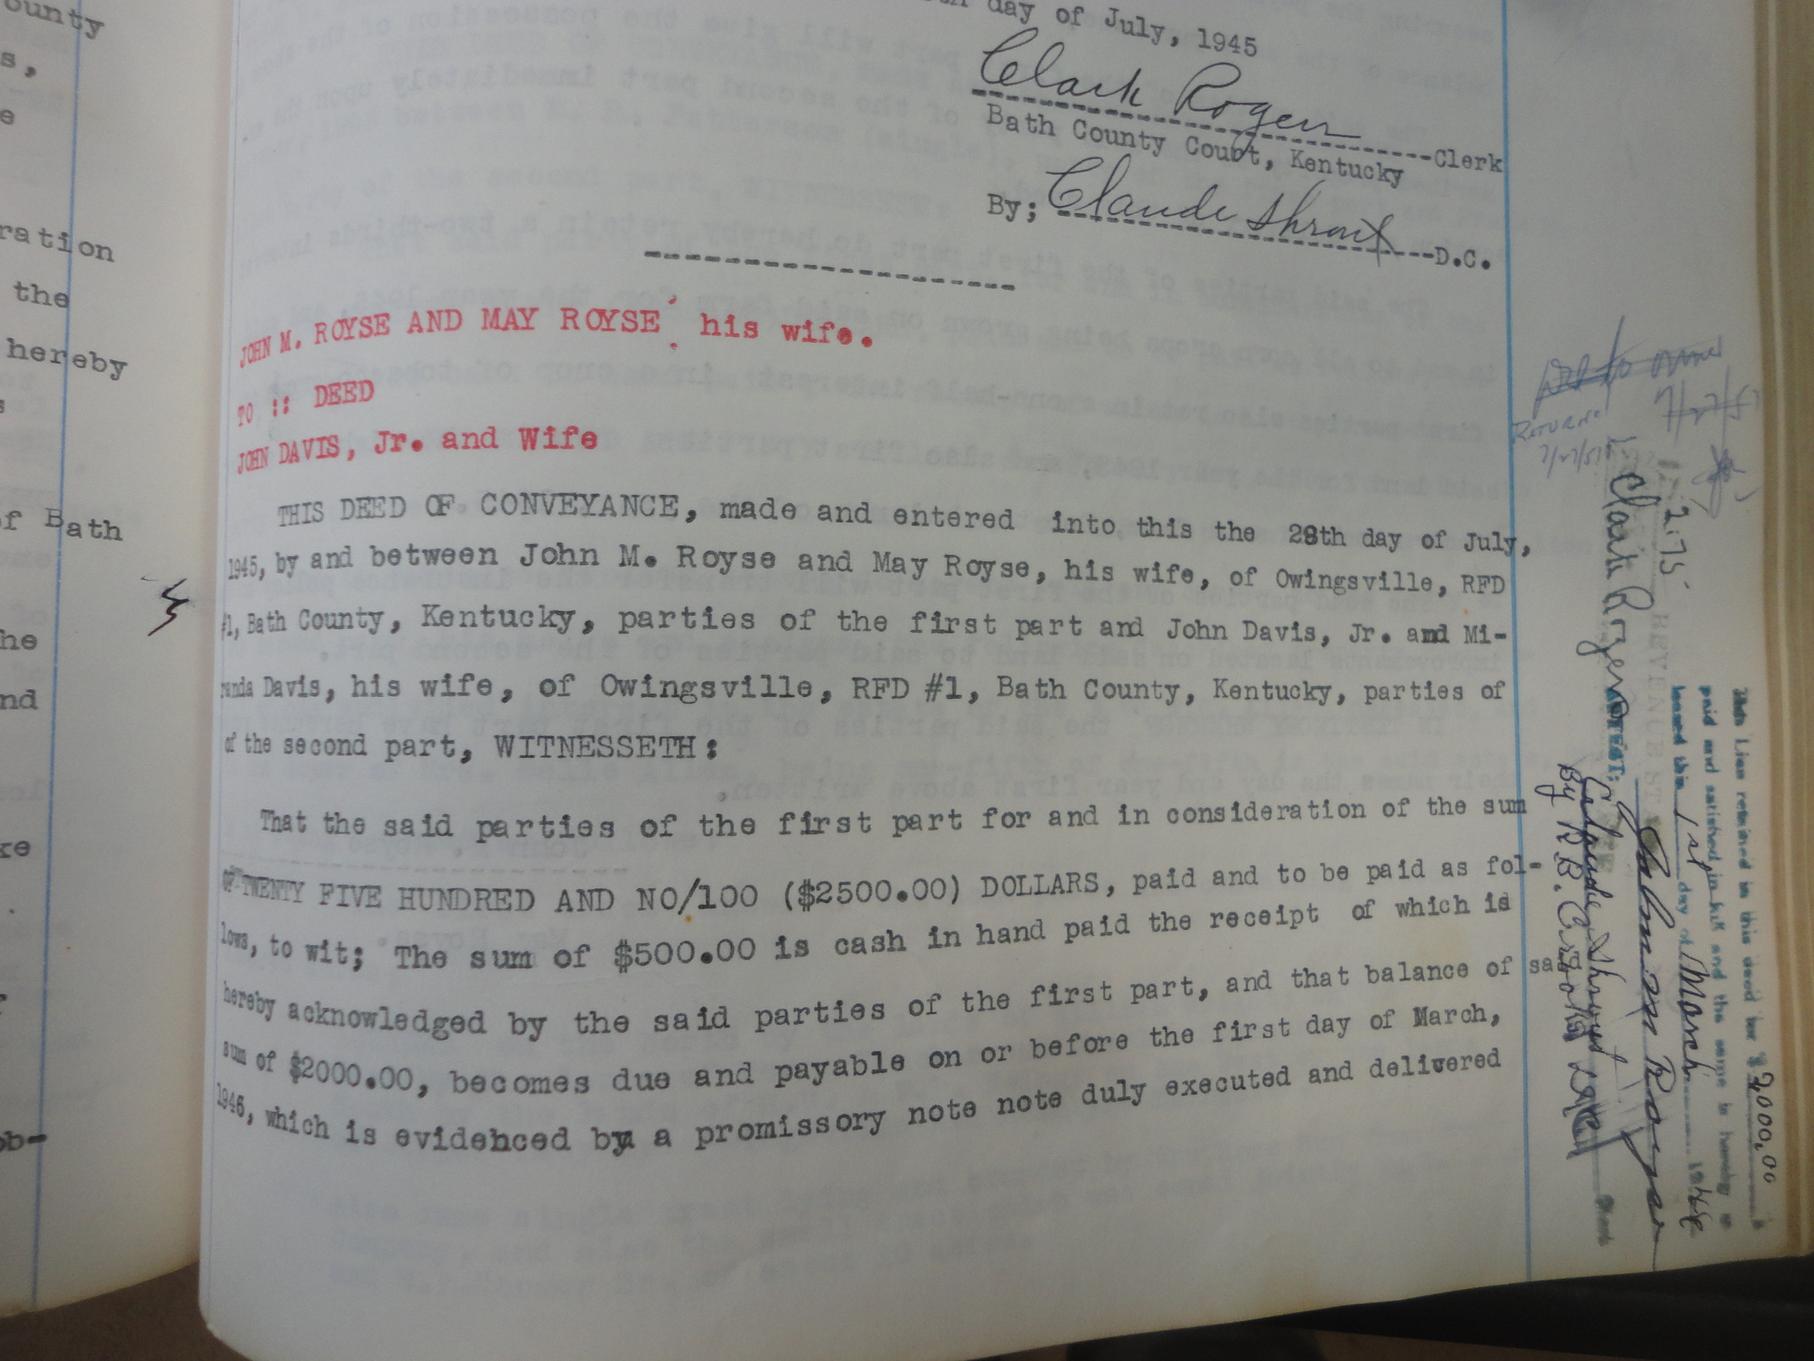 ounty
s,
e
ration
the
hereby
s
f Bath
he
nd
ke
ob-
day of July, 1945
Clark Rogers
Clerk
Bath County Court, Kentucky
By; Claude Shrout D.C.
JOHN M. ROYSE AND MAY ROYSE his wife.
TO :: DEED
JOHN DAVIS, Jr. and Wife
THIS DEED OF CONVEYANCE, made and entered into this the 28th day of July,
1945, by and between John M. Royse and May Royse, his wife, of Owingsville, RFD
#1, Bath County, Kentucky, parties of the first part and John Davis, Jr. and Mi-
randa Davis, his wife, of Owingsville, RFD #1, Bath County, Kentucky, parties of
of the second part, WITNESSETH:
That the said parties of the first part for and in consideration of the sum
OF TWENTY FIVE HUNDRED AND NO/100 ($2500.00) DOLLARS, paid and to be paid as fol-
lows, to wit; The sum of $500.00 is cash in hand paid the receipt of which is
hereby acknowledged by the said parties of the first part, and that balance of said
sum of $2000.00, becomes due and payable on or before the first day of March,
1946, which is evidenced by a promissory note note duly executed and delivered
Return
7/27/51
2.75
REVENUE
Clark Rogers
The Lien retained in this deed for $2000.00 is
paid and satisfied in full and the same is hereby re-
leased this 1st day of March 1946
John M Royse
ATTEST:
Claude Shrout Clerk
By